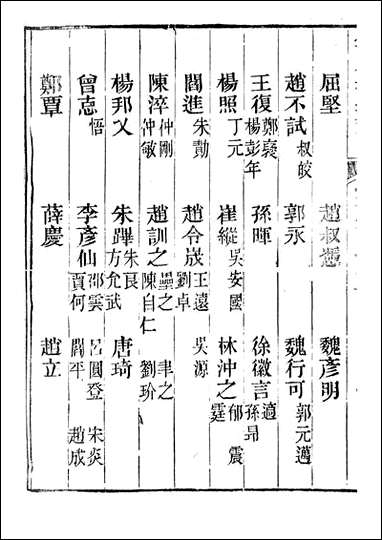 屈堅 趙叔憑 魏彥明
趙不試 叔皎 郭永 魏行可 郭元邁
王復 鄭褒 楊彭年 孫暉 徐徽言 适 孫昂
楊照 丁元 崔縱 吳安國 林沖之 郁 霆 震
閻進 朱勣 趙令晟 王遠 劉卓 吳源
陳淬 仲剛 仲敏 趙訓之 壘之 陳自仁 聿之 劉玠
楊邦乂 朱蹕 朱良 方允武 唐琦
曾志 悟 李彥仙 邵雲 賈何 呂圓登 閻平 宋炎 趙成
鄭覃 薛慶 趙立